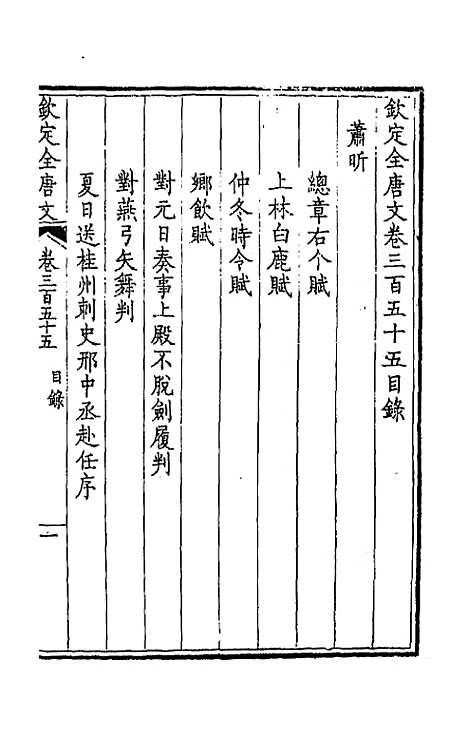 欽定全唐文卷三百五十五目錄
蕭昕
總章右个賦
上林白鹿賦
仲冬時令賦
鄉飲賦
對元日奏事上殿不脫劍履判
對燕弓矢舞判
夏日送桂州刺史邢中丞赴任序
欽定全唐文 卷三百五十五 目錄 一